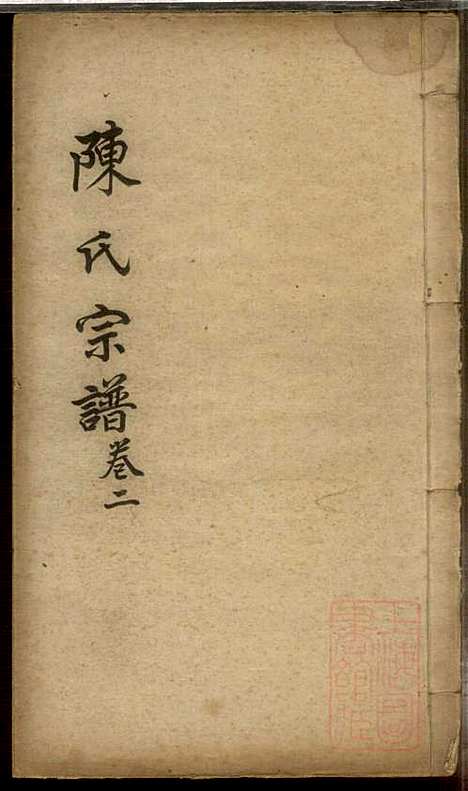 陳氏宗譜卷二